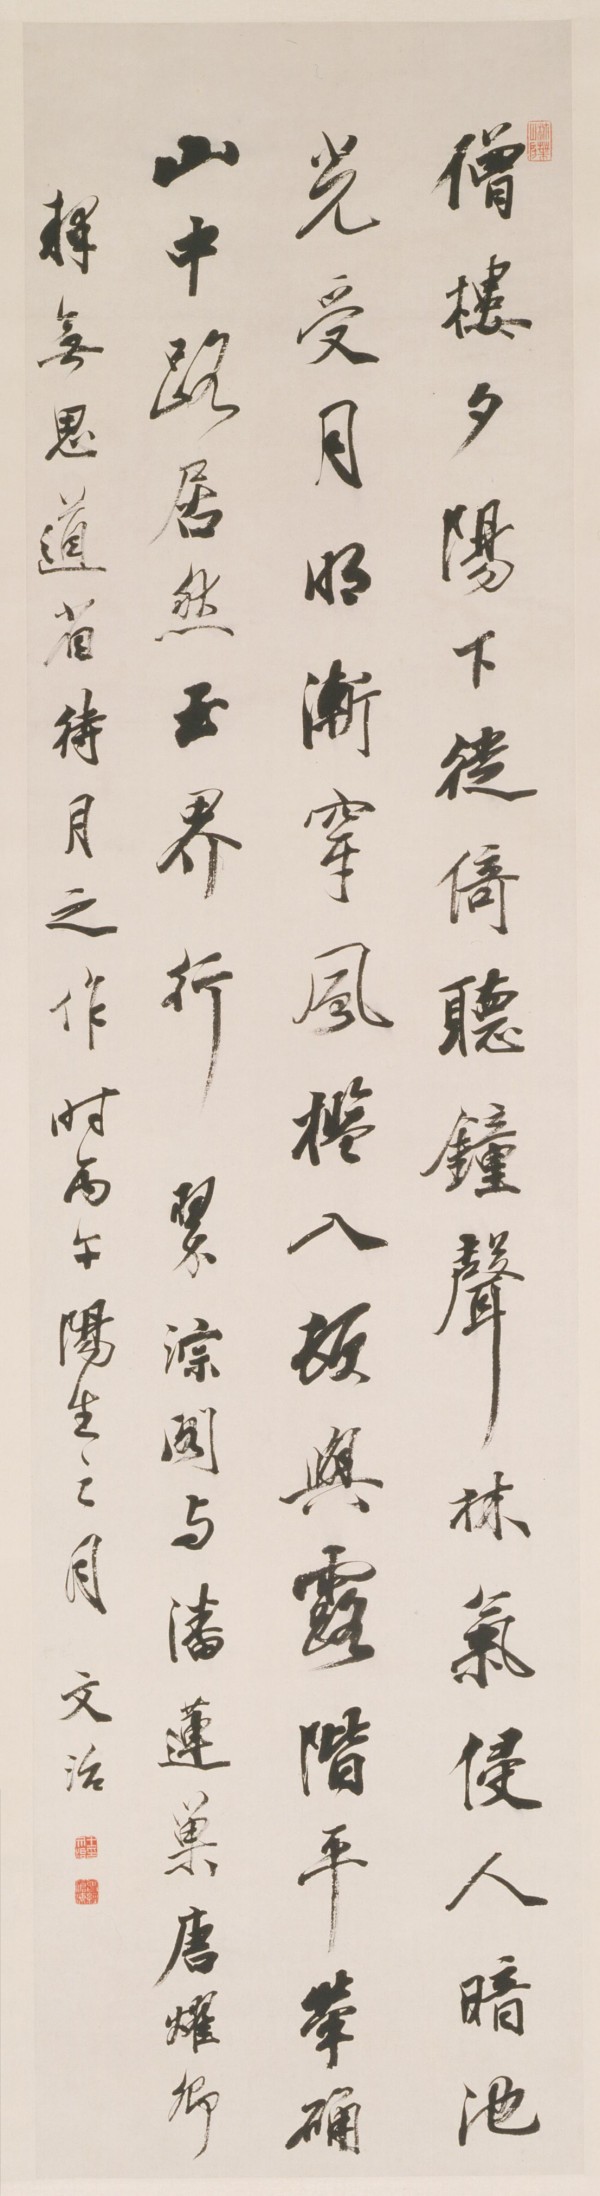 僧樓夕陽下徙倚聽鐘聲林氣侵人暗池
光受月明漸穿風檻入頓與露階平犖确
山中路居然玉界行 翠淙閣与潘蓮巢唐耀卿
釋無思道省待月之作时丙午陽生之月 文治